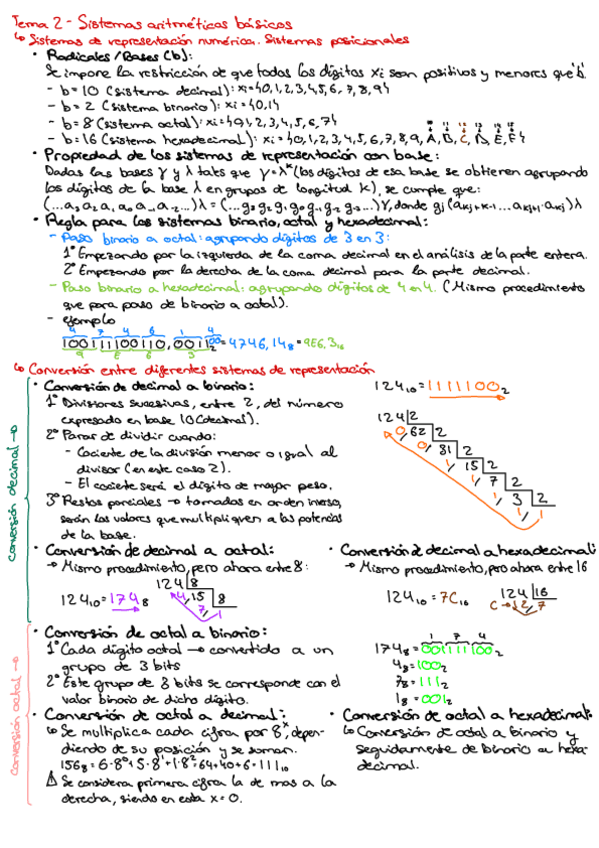 Tema 2 - Sistemas aritméticos básicos
↳ Sistemas de representación numérica. Sistemas posicionales
• Radicales/Bases (b):
Se impone la restricción de que todos los dígitos xi sean positivos y menores que 'b'.
- b=10 (sistema decimal): xi={0,1,2,3,4,5,6,7,8,9}
- b=2 (sistema binario): xi={0,1}
- b=8 (sistema octal): xi={0,1,2,3,4,5,6,7}
10 11 12 13 14 15
- b=16 (sistema hexadecimal): xi={0,1,2,3,4,5,6,7,8,9,A,B,C,D,E,F}
• Propiedad de los sistemas de representación con base:
Dadas las bases γ y λ tales que γ=λ^k (los dígitos de esa base se obtienen agrupando
los dígitos de la base λ en grupos de longitud k), se cumple que:
(...a₃ a₂ a₁ a₀ a₋₁ a₋₂...)λ = (...g₃ g₂ g₁ g₀ g₋₁ g₋₂...)γ, donde gj (akj+k-1...akj+1 akj)λ
• Regla para los sistemas binario, octal y hexadecimal:
- Paso binario a octal: agrupando dígitos de 3 en 3:
1º Empezando por la izquierda de la coma decimal en el análisis de la parte entera.
2º Empezando por la derecha de la coma decimal para la parte decimal.
- Paso binario a hexadecimal: agrupando dígitos de 4 en 4. (Mismo procedimiento
que para paso de binario a octal).
- ejemplo
4 7 4 6 1 4
100111100110,0011₂ = 4746,14₈ = 9E6,3₁₆
9 E 6 3
↳ Conversión entre diferentes sistemas de representación
conversión decimal →
• Conversión de decimal a binario:
1º Divisiones sucesivas, entre 2, del número
expresado en base 10 (decimal).
2º Parar de dividir cuando:
- Cociente de la división menor o igual al
divisor (en este caso 2).
- El cociente será el dígito de mayor peso.
3º Restos parciales → tomados en orden inverso,
serán los valores que multipliquen a las potencias
de la base.
124₁₀ = 1111100₂
124 2
0, 62 2
0, 31 2
1, 15 2
1, 7 2
1, 3 2
1, 1
• Conversión de decimal a octal:
→ Mismo procedimiento, pero ahora entre 8:
124₁₀ = 174₈
124 8
4, 15 8
7, 1
• Conversión de decimal a hexadecimal:
→ Mismo procedimiento, pero ahora entre 16
124₁₀ = 7C₁₆
124 16
C → 12, 7
conversión octal →
• Conversión de octal a binario:
1º Cada dígito octal → convertido a un
grupo de 3 bits
2º Este grupo de 3 bits se corresponde con el
valor binario de dicho dígito.
1 7 4
174₈ = 001111100₂
4₈ = 100₂
7₈ = 111₂
1₈ = 001₂
• Conversión de octal a decimal:
↳ Se multiplica cada cifra por 8^x, depen-
diendo de su posición y se suman.
156₈ = 6·8⁰ + 5·8¹ + 1·8² = 64+40+6 = 111₁₀
⚠ Se considera primera cifra la de mas a la
derecha, siendo en esta x=0.
• Conversión de octal a hexadecimal:
↳ Conversión de octal a binario y
seguidamente de binario a hexa-
decimal.